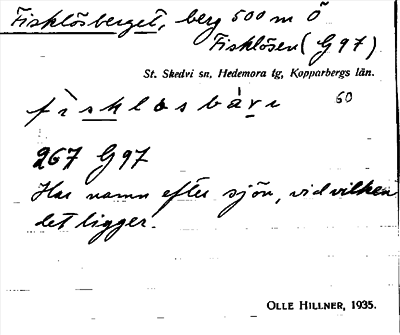 Fisklösberget, berg 500 m Ö
Fisklösen (G 97)
St. Skedvi sn, Hedemora tg, Kopparbergs län.
60
267 G97
Har namn efter sjön, vid vilken
det ligger.
OLLE HILLNER, 1935.